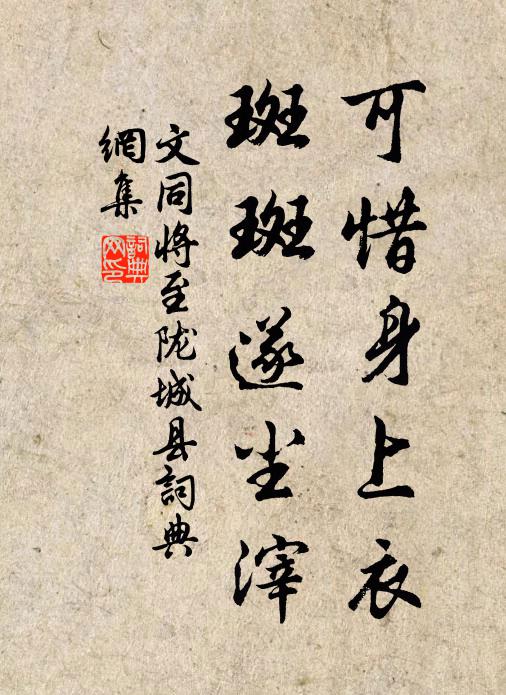 可惜身上衣
斑斑遂尘滓
文同将至陇城县詞典
網集
詞典网印